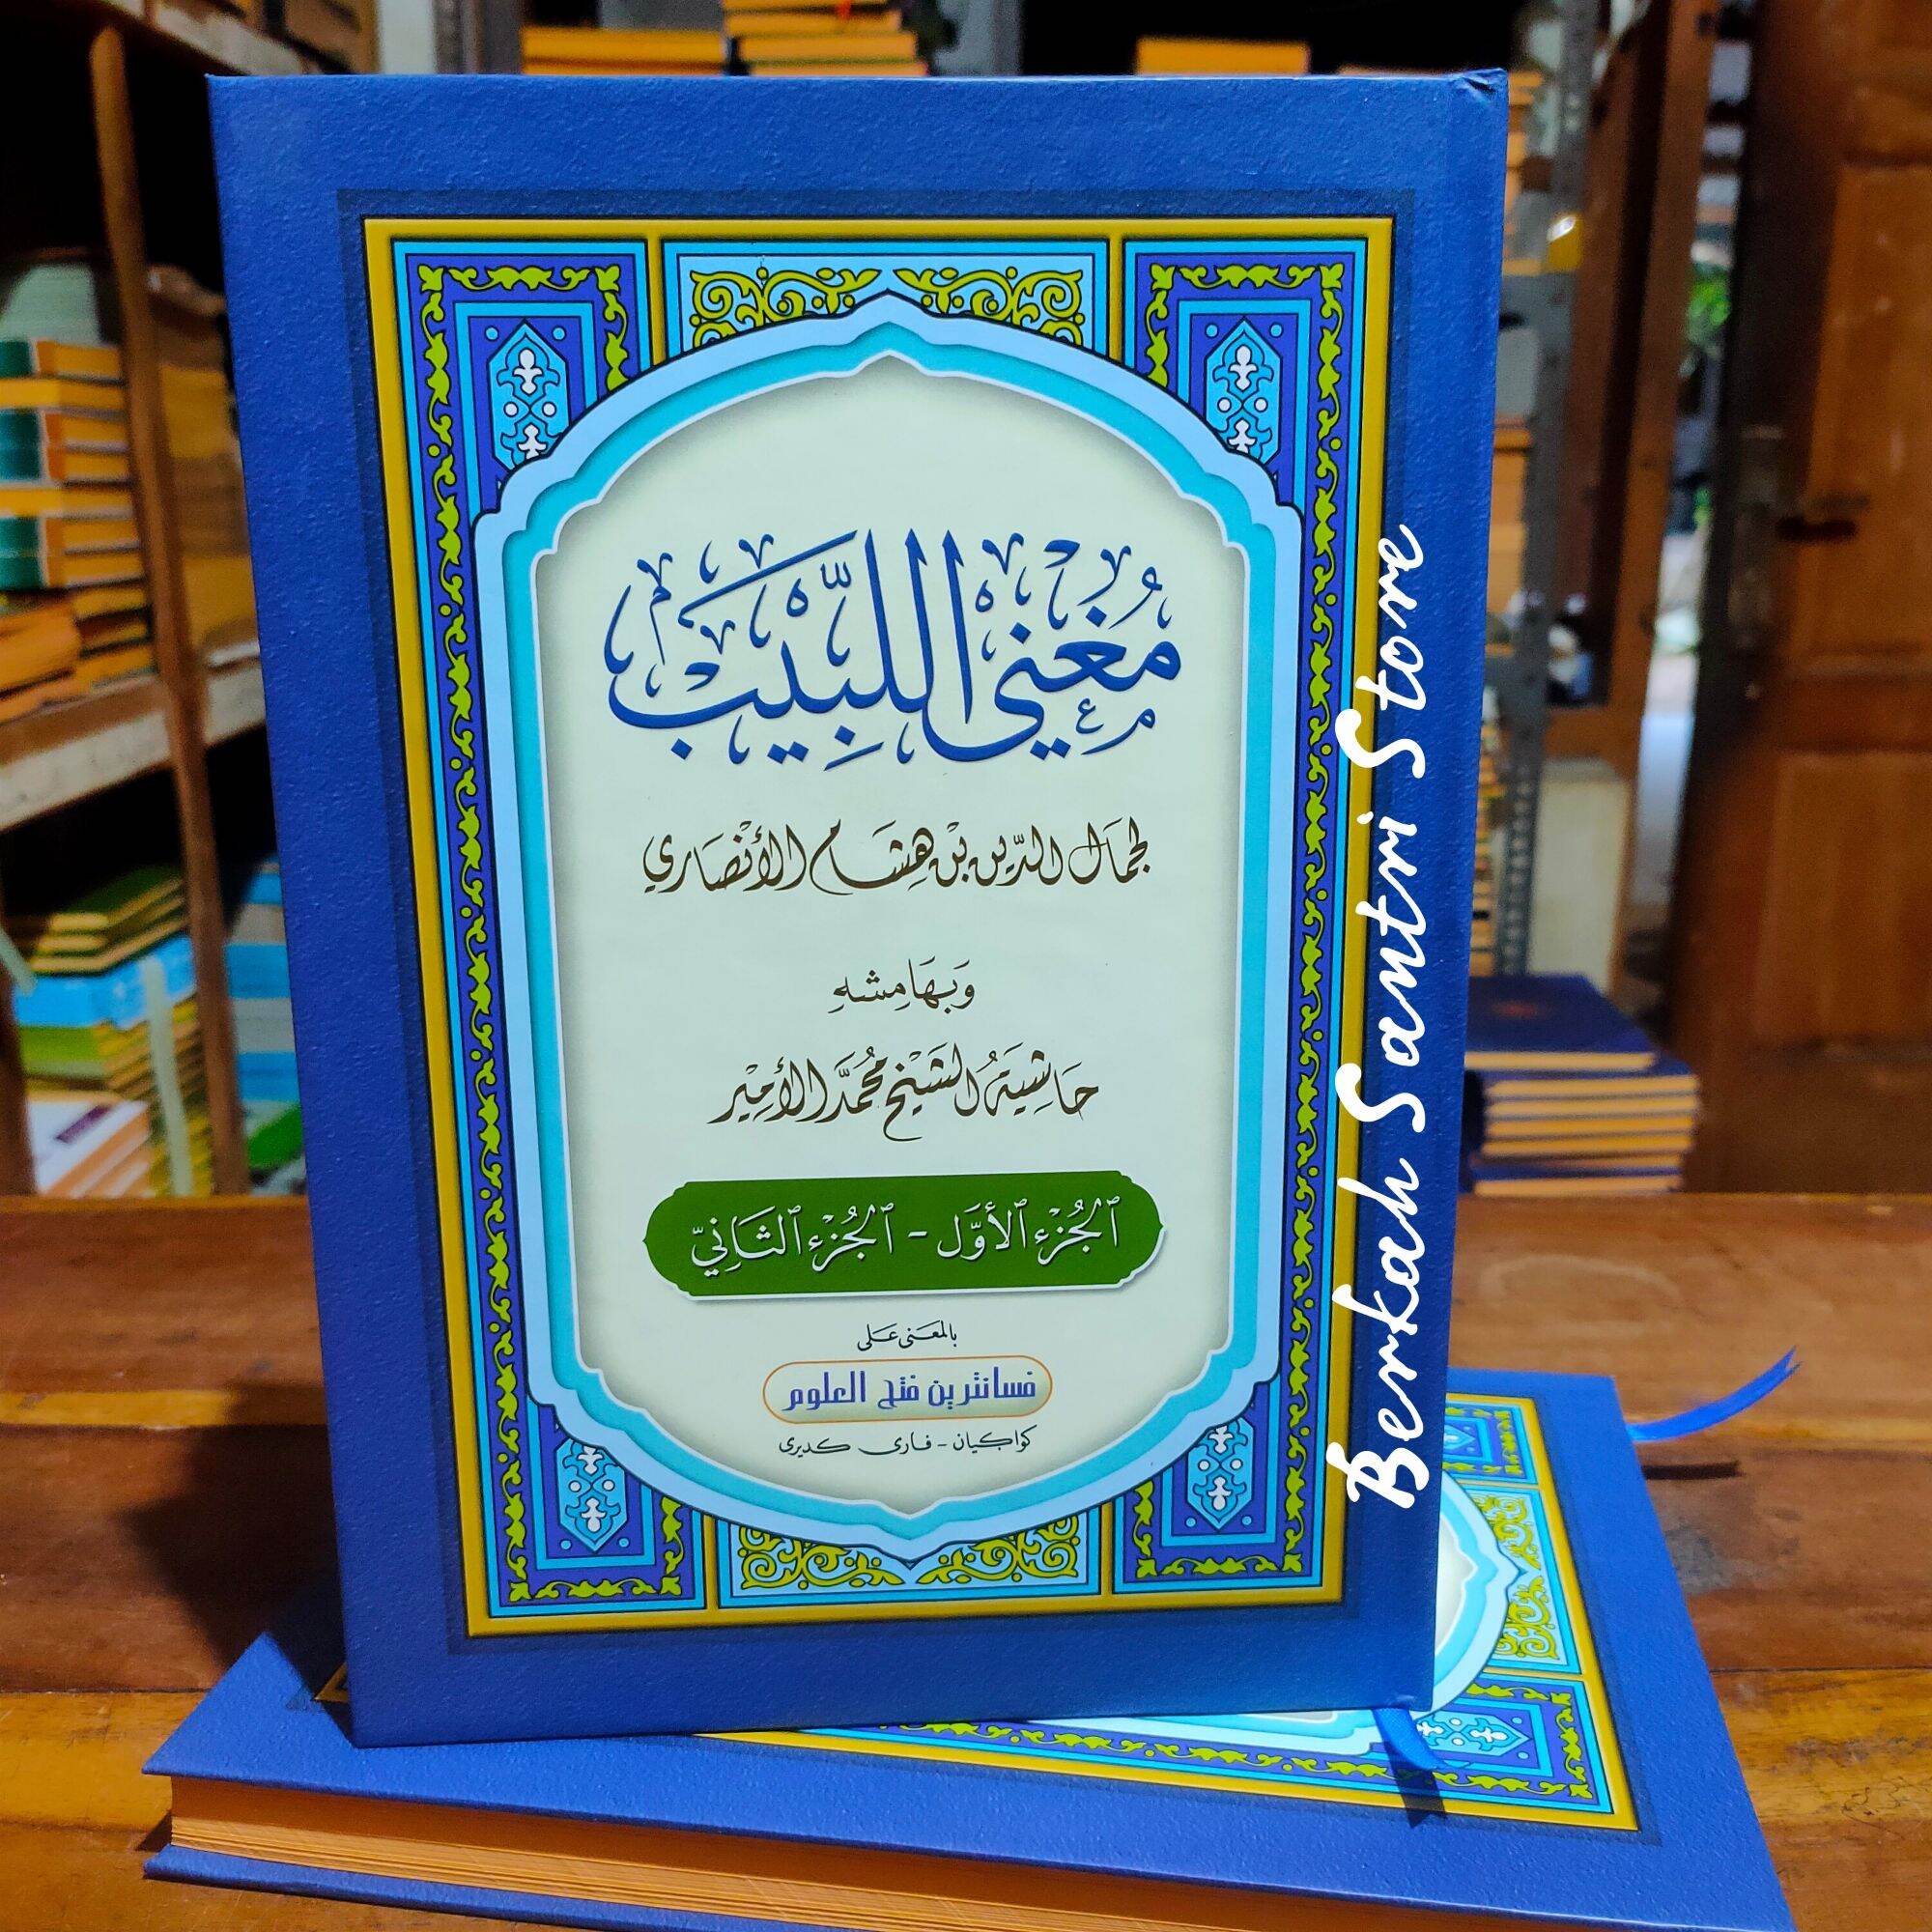 مُغْنِي اللَّبِيْبَ
لجمَال الدِّين بْن هِشَام الأَنْصَاري
وَبهَامِشهِ
حَاشِيَةُ الشَّيْخ مُحَمَّد الأمِيْر
اَلْجُزْء اَلأَوَّل - اَلْجُزْء اَلثَانِيّ
بالمعَنى عَلى
فسانترين فتح العلوم
كواكيان - فارى كديرى
Berkah Santri Store